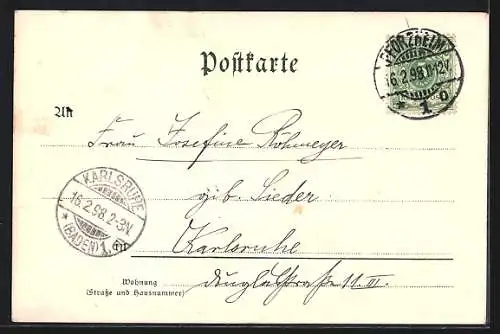 Postkarte
PFORZHEIM
16.2.98.11-12V.
* 1 o
An
Frau Josefine Röhmeyer
KARLSRUHE
16.2.98.2-3N.
* (BADEN) 1.
geb. Lieder
in
Karlsruhe
Wohnung
(Straße und Hausnummer)
11. III.